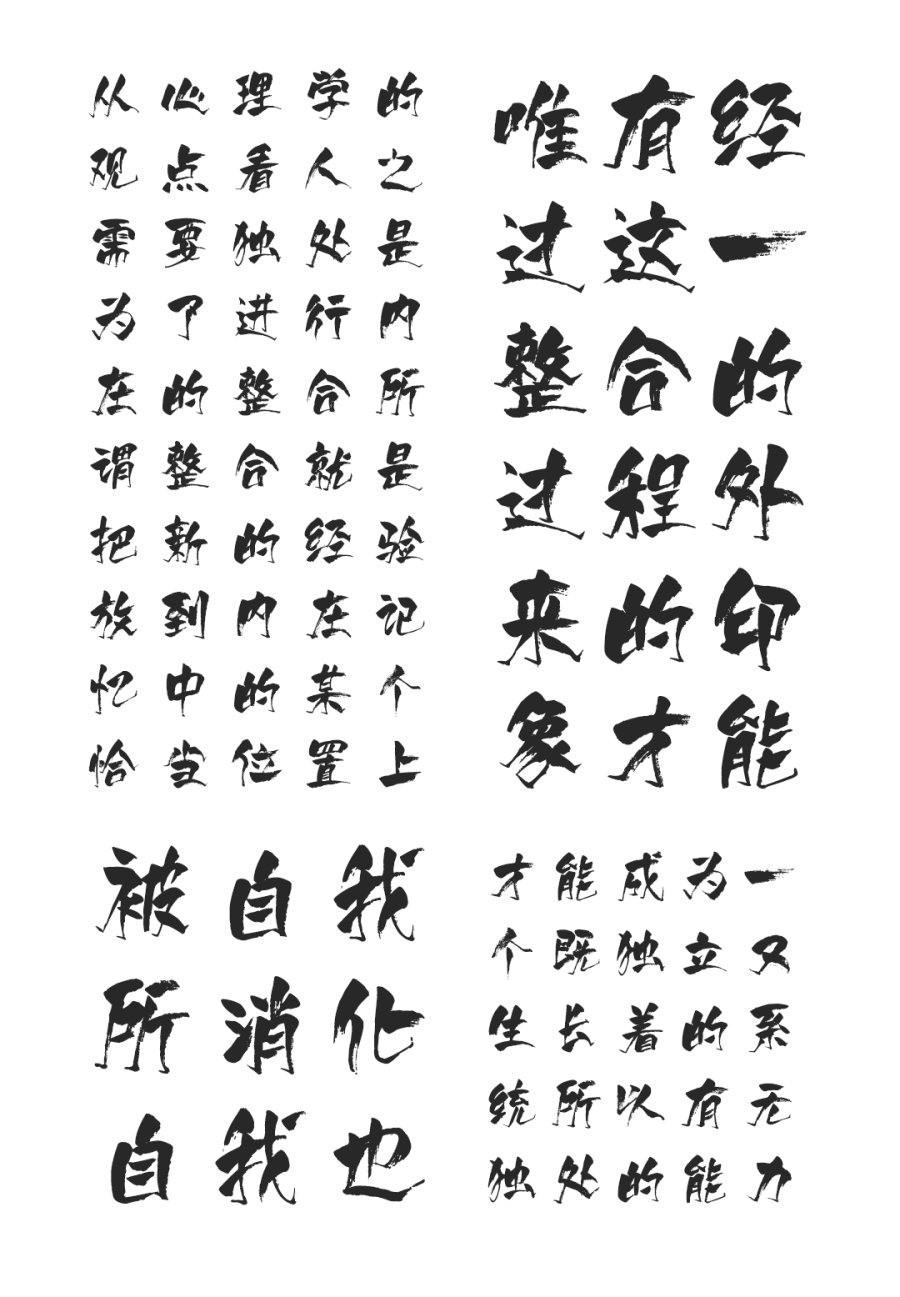 从心理学的
观点看人之
需要独处是
为了进行内
在的整合所
谓整合就是
把新的经验
放到内在记
忆中的某个
恰当位置上
唯有经
过这一
整合的
过程外
来的印
象才能
被自我
所消化
自我也
才能成为一
个既独立又
生长着的系
统所以有无
独处的能力